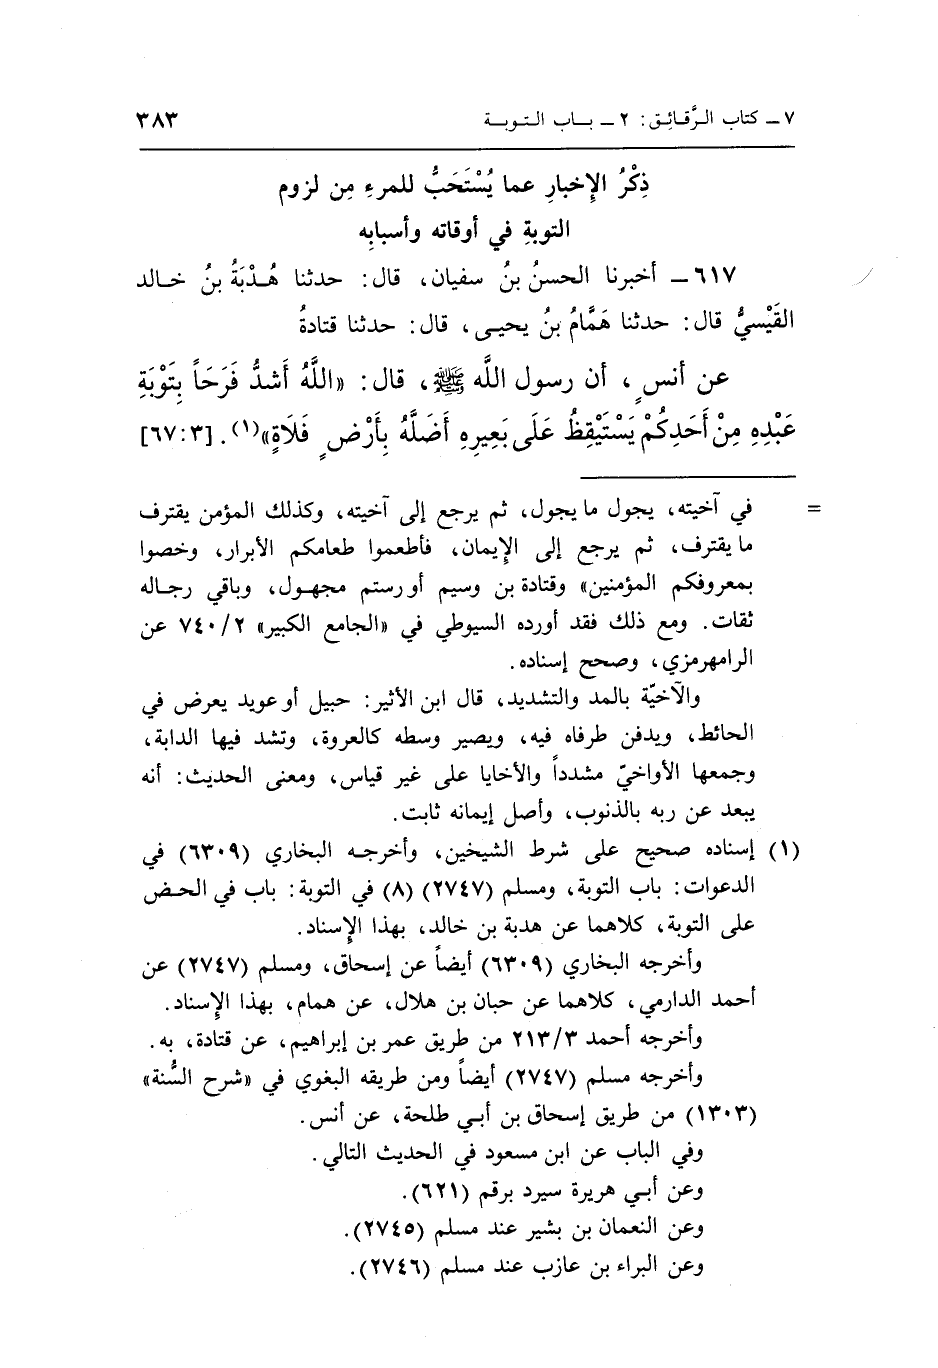 ٧ ــ كتاب الرَّقائِق: ٢ ــ باب التوبة ٣٨٣
ذِكْرُ الإِخبارِ عما يُسْتَحَبُّ للمرءِ مِن لزوم
التوبةِ في أوقاته وأسبابِه
٦١٧ ــ أخبرنا الحسنُ بنُ سفيان، قال: حدثنا هُدْبَةُ بنُ خالد
القَيْسيُّ قال: حدثنا هَمَّامُ بنُ يحيى، قال: حدثنا قتادةُ
عن أنسٍ، أن رسول اللَّه ﷺ، قال: «اللَّهُ أَشدُّ فَرَحَاً بِتَوْبَةِ
عَبْدِهِ مِنْ أَحَدِكُمْ يَسْتَيْقِظُ عَلَى بَعِيرِهِ أَضَلَّهُ بِأَرْضٍ فَلَاةٍ»(١). [٣:٦٧]
= في آخيته، يجول ما يجول، ثم يرجع إلى آخيته، وكذلك المؤمن يقترف
ما يقترف، ثم يرجع إلى الإِيمان، فأطعموا طعامكم الأبرار، وخصوا
بمعروفكم المؤمنين» وقتادة بن وسيم أو رستم مجهول، وباقي رجاله
ثقات. ومع ذلك فقد أورده السيوطي في «الجامع الكبير» ٢/٧٤٠ عن
الرامهرمزي، وصحح إسناده.
والآخيّة بالمد والتشديد، قال ابن الأثير: حبيل أو عويد يعرض في
الحائط، ويدفن طرفاه فيه، ويصير وسطه كالعروة، وتشد فيها الدابة،
وجمعها الأواخيّ مشدداً والأخايا على غير قياس، ومعنى الحديث: أنه
يبعد عن ربه بالذنوب، وأصل إيمانه ثابت.
(١) إسناده صحيح على شرط الشيخين، وأخرجه البخاري (٦٣٠٩) في
الدعوات: باب التوبة، ومسلم (٢٧٤٧) (٨) في التوبة: باب في الحض
على التوبة، كلاهما عن هدبة بن خالد، بهذا الإِسناد.
وأخرجه البخاري (٦٣٠٩) أيضاً عن إسحاق، ومسلم (٢٧٤٧) عن
أحمد الدارمي، كلاهما عن حبان بن هلال، عن همام، بهذا الإِسناد.
وأخرجه أحمد ٣/٢١٣ من طريق عمر بن إبراهيم، عن قتادة، به.
وأخرجه مسلم (٢٧٤٧) أيضاً ومن طريقه البغوي في «شرح السُّنة»
(١٣٠٣) من طريق إسحاق بن أبي طلحة، عن أنس.
وفي الباب عن ابن مسعود في الحديث التالي.
وعن أبي هريرة سيرد برقم (٦٢١).
وعن النعمان بن بشير عند مسلم (٢٧٤٥).
وعن البراء بن عازب عند مسلم (٢٧٤٦).